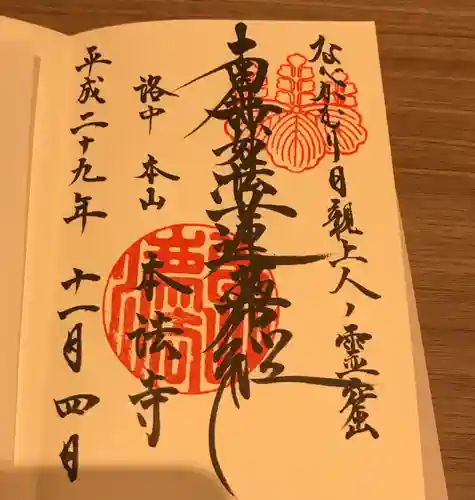 なべかむり日親上人ノ霊窟
南無妙法蓮華経
洛中 本山
本法寺
平成二十九年 十一月四日